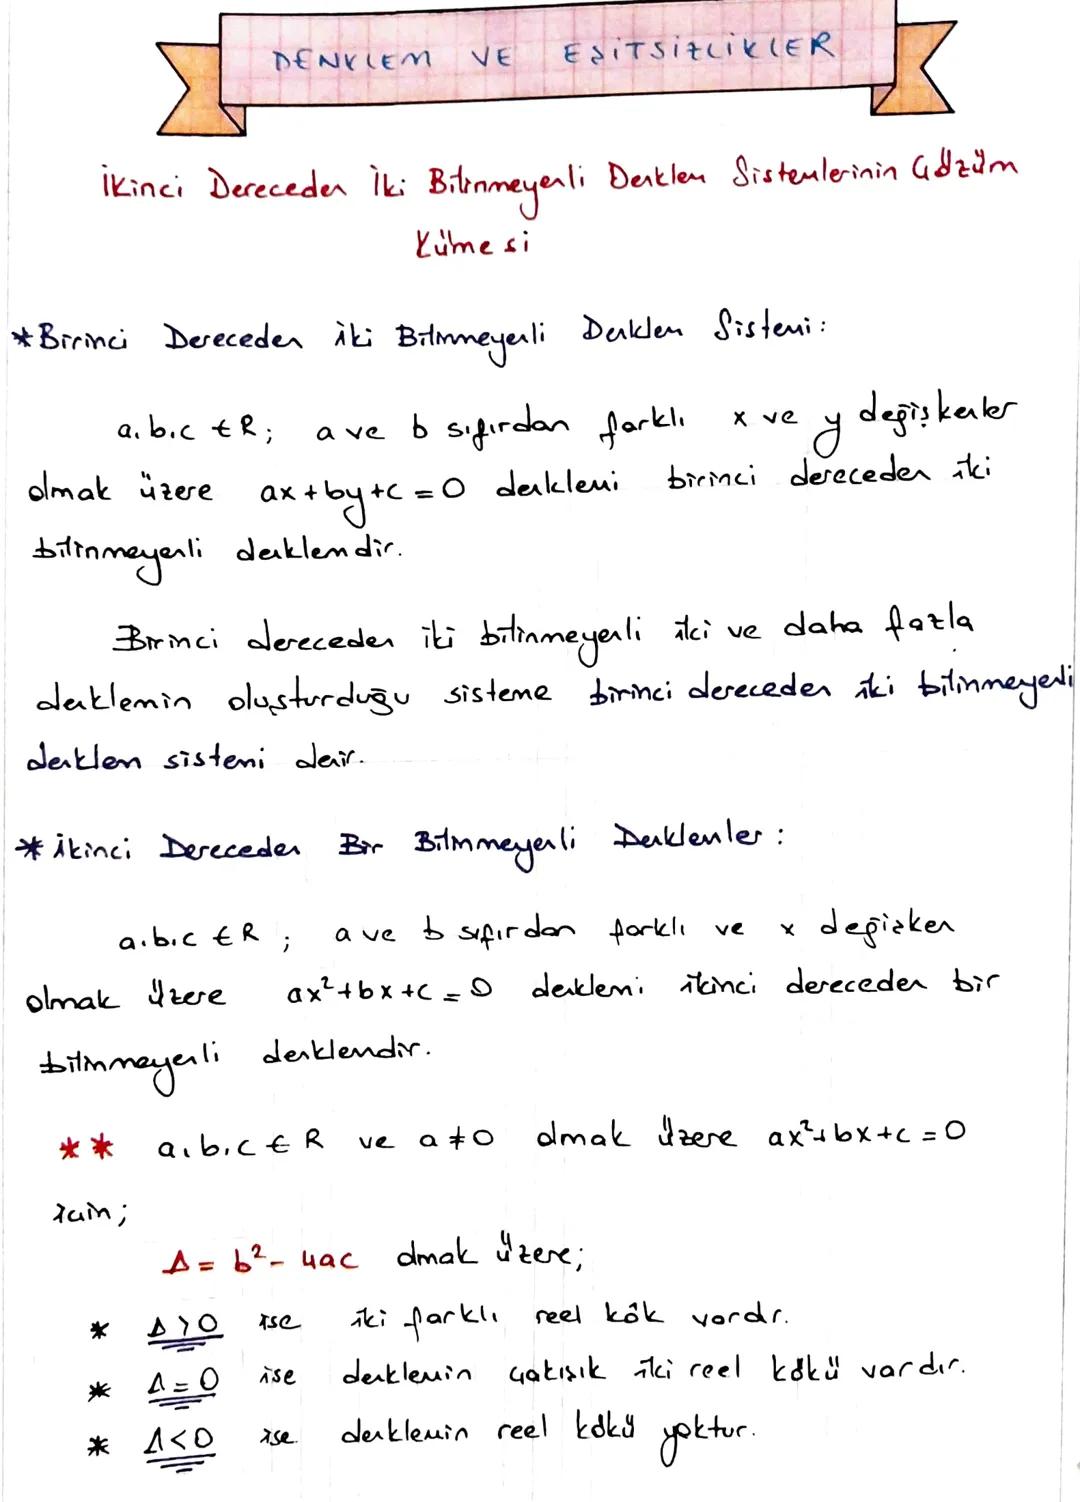 DENKLEM VE EŞİTSİZLİKLER
İkinci Dereceden İki Bilinmeyenli Denklem Sistemlerinin Çözüm
Kümesi
* Birinci Dereceden İki Bilinmeyenli Denklem Sistemi:
a,b,c ∈ R; a ve b sıfırdan farklı x ve y değişkenler
olmak üzere ax+by+c=0 denklemi birinci dereceden iki
bilinmeyenli denklemdir.
Birinci dereceden iki bilinmeyenli iki ve daha fazla
denklemin oluşturduğu sisteme birinci dereceden iki bilinmeyenli
denklem sistemi denir.
* İkinci Dereceden Bir Bilinmeyenli Denklemler:
a,b,c ∈ R; a ve b sıfırdan farklı ve x değişken
olmak üzere ax²+bx+c=0 denklemi ikinci dereceden bir
bilinmeyenli denklemdir.
** a,b,c ∈ R ve a≠0 olmak üzere ax²+bx+c=0
için;
Δ = b²-4ac olmak üzere;
* Δ>0 ise iki farklı reel kök vardır.
* Δ=0 ise denklemin çakışık iki reel kökü vardır.
* Δ<0 ise denklemin reel kökü yoktur.